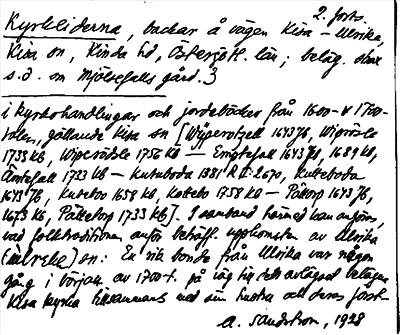 2. forts.
Kyrkliderna, backar å vägen Kisa – Ulrika,
Kisa sn, Kinda hd, Östergötl. län; beläg. strax
s.d. om Mjölsefalls gård. }
i kyrkohandlingar och jordeböcker från 1600- & 1700-
talen, gällande Kisa sn [Wijperotzell 1643 Jb, Wiprösle
1733 KB, Wiperödsle 1756 KB — Emptefall 1643 Jb, 1689 KB,
Ämtefall 1733 KB — Kutuboda 1381 R II: 2670, Kutteboda
1643 Jb, Kutebo 1658 KB, Kottebo 1758 KB — Påttorp 1643 Jb,
1673 KB, Påttetorp 1733 KB]. I samband härmed kan anföras,
vad folktraditionen anför beträff. uppkomsten av Ulrika
sn: En rik bonde från Ulrika var någon
gång i början av 1700-t. på väg till den avlägset belägna
Kisa kyrka tillsammans med sin hustru och deras först-
A. Sandström, 1928